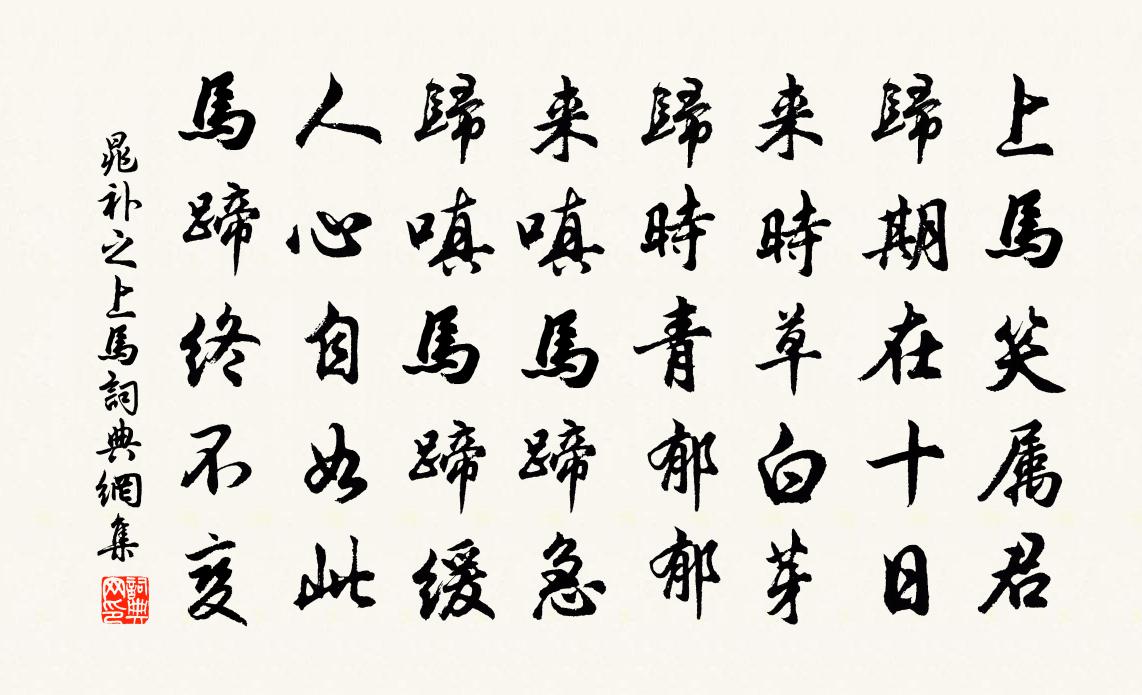 上馬笑属君
歸期在十日
来時草白芽
歸時青郁郁
来嗔馬蹄急
歸嗔馬蹄緩
人心自如此
馬蹄終不变
晁补之上馬詞典網集
詞典网印